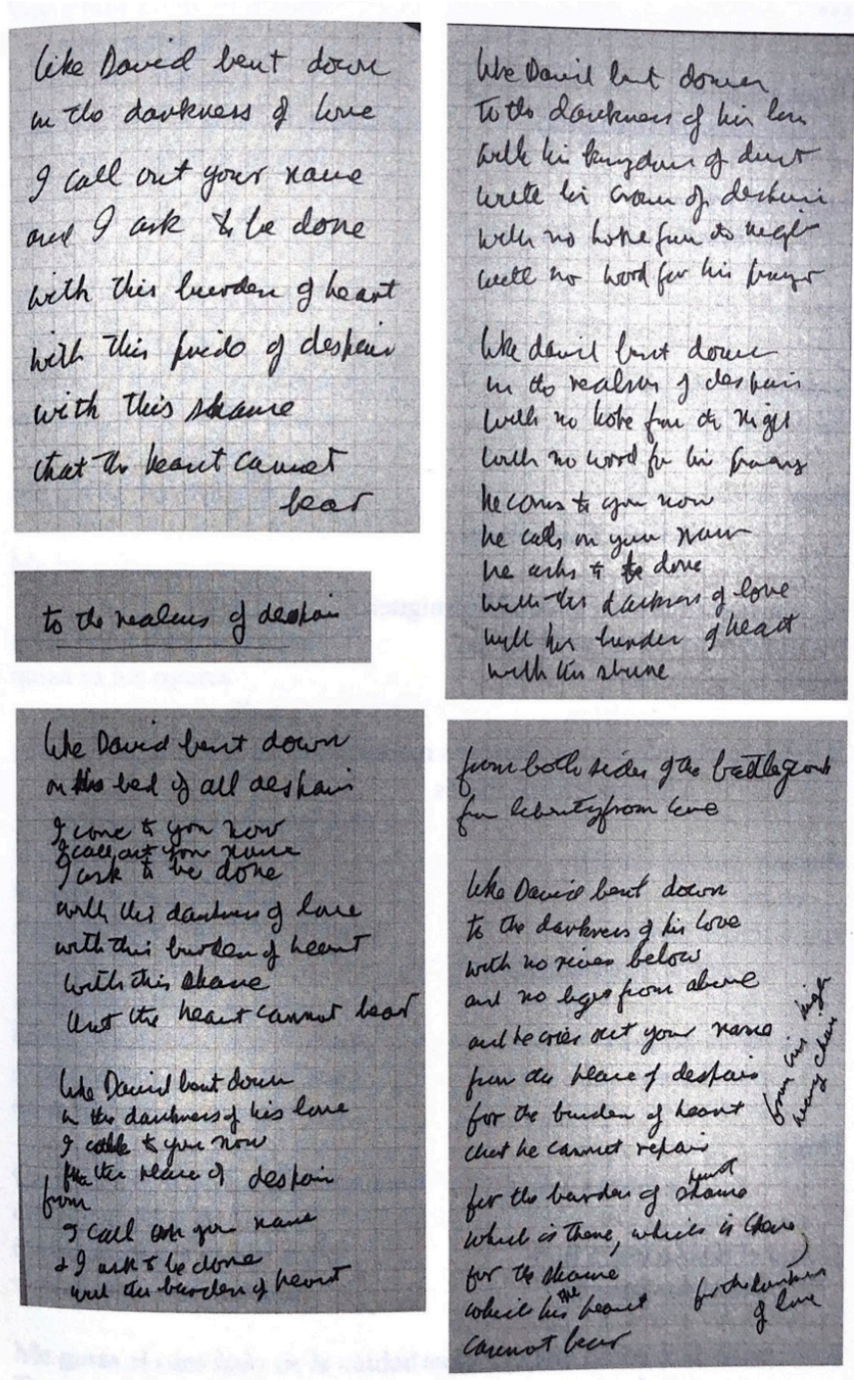 like David bent down
in the darkness of love
I call out your name
and I ask to be done
with this burden of heart
with this pride of despair
with this shame
that the heart cannot
bear
to the realms of despair
like David bent down
on the bed of all despair
I come to you now
I call out your name
I ask to be done
with this darkness of love
with this burden of heart
with this shame
that the heart cannot bear
like David bent down
in the darkness of his love
I call to you now
from the place of despair
I call out your name
& I ask to be done
with the burden of heart
like David bent down
to the darkness of his love
with his kingdom of dust
with his crown of despair
with no hope from the night
with no word for his prayer
like david bent down
in the realms of despair
with no hope from the night
with no word for his prayer
he comes to you now
he calls on your name
he asks to be done
with this darkness of love
with his burden of heart
with this shame
from both sides of the battleground
for liberty from love
like David bent down
to the darkness of his love
with no river below
and no from above
and he cries out your name
from the place of despair
from his high
chair
for the burden of heart
that he cannot repair
for the burden of shame
which is there, which is
for the shame
which his the heart
for the burden
of love
cannot bear